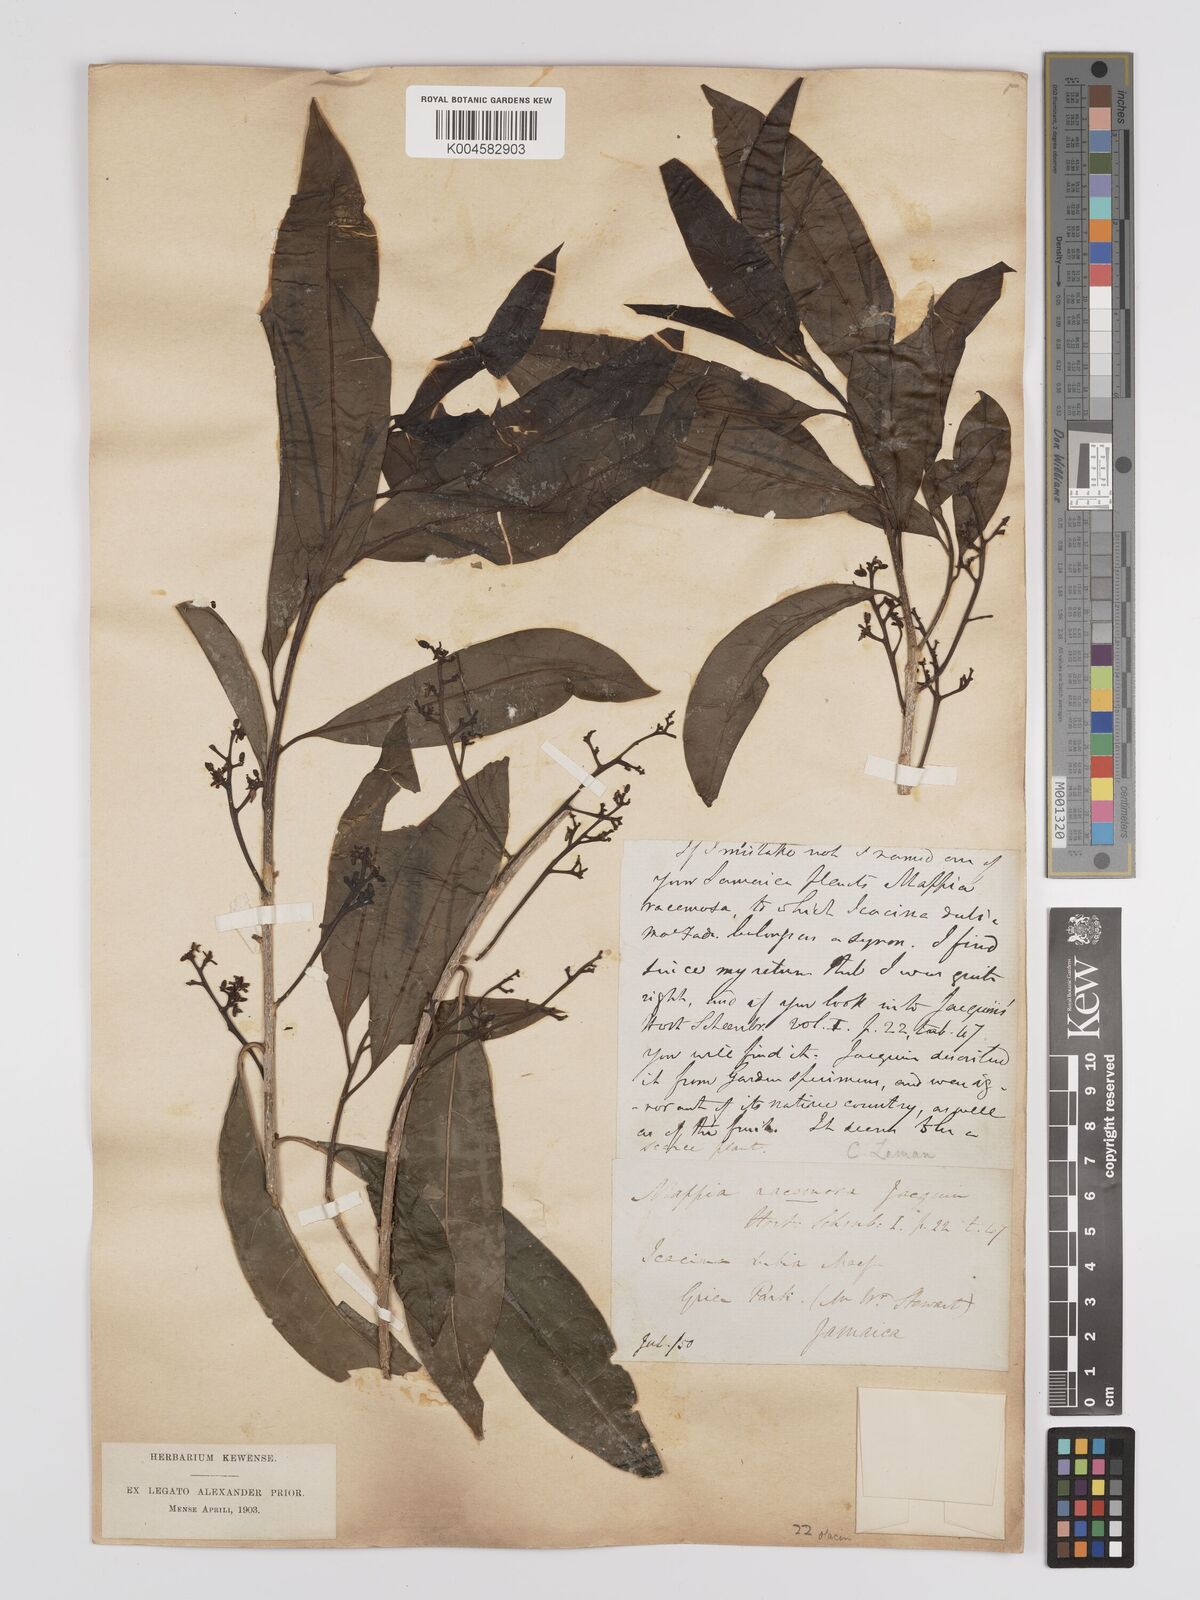 ROYAL BOTANIC GARDENS KEW
K004582903
If I mistake not I named one of
your Jamaica plants Mappia
racemosa, to which Icacina dubia
Macfad. belongs as a synon. I find
since my return that I was quite
right, and if you look into Jacquin's
Hort Schoenbr. vol. I. p. 22, tab. 47
you will find it. Jacquin described
it from Garden specimens, and was ig-
-norant of its native country, as well
as of the fruit. It seems to be a
scarce plant.
C. Leman
Mappia racemosa Jacquin
Hort. Schonb. I. p. 22 t. 47
Icacina dubia Macf
Park. (Mr Wm Stewart)
Jamaica
Jul./50
HERBARIUM KEWENSE.
EX LEGATO ALEXANDER PRIOR.
MENSE APRILI, 1903.
22 Olacin
inches
centimetres
Density
Don Williams
M001320
KEW
Royal Botanic Gardens
copyright reserved
0 1 2 3 4 5 6 7 8 9 10
cm